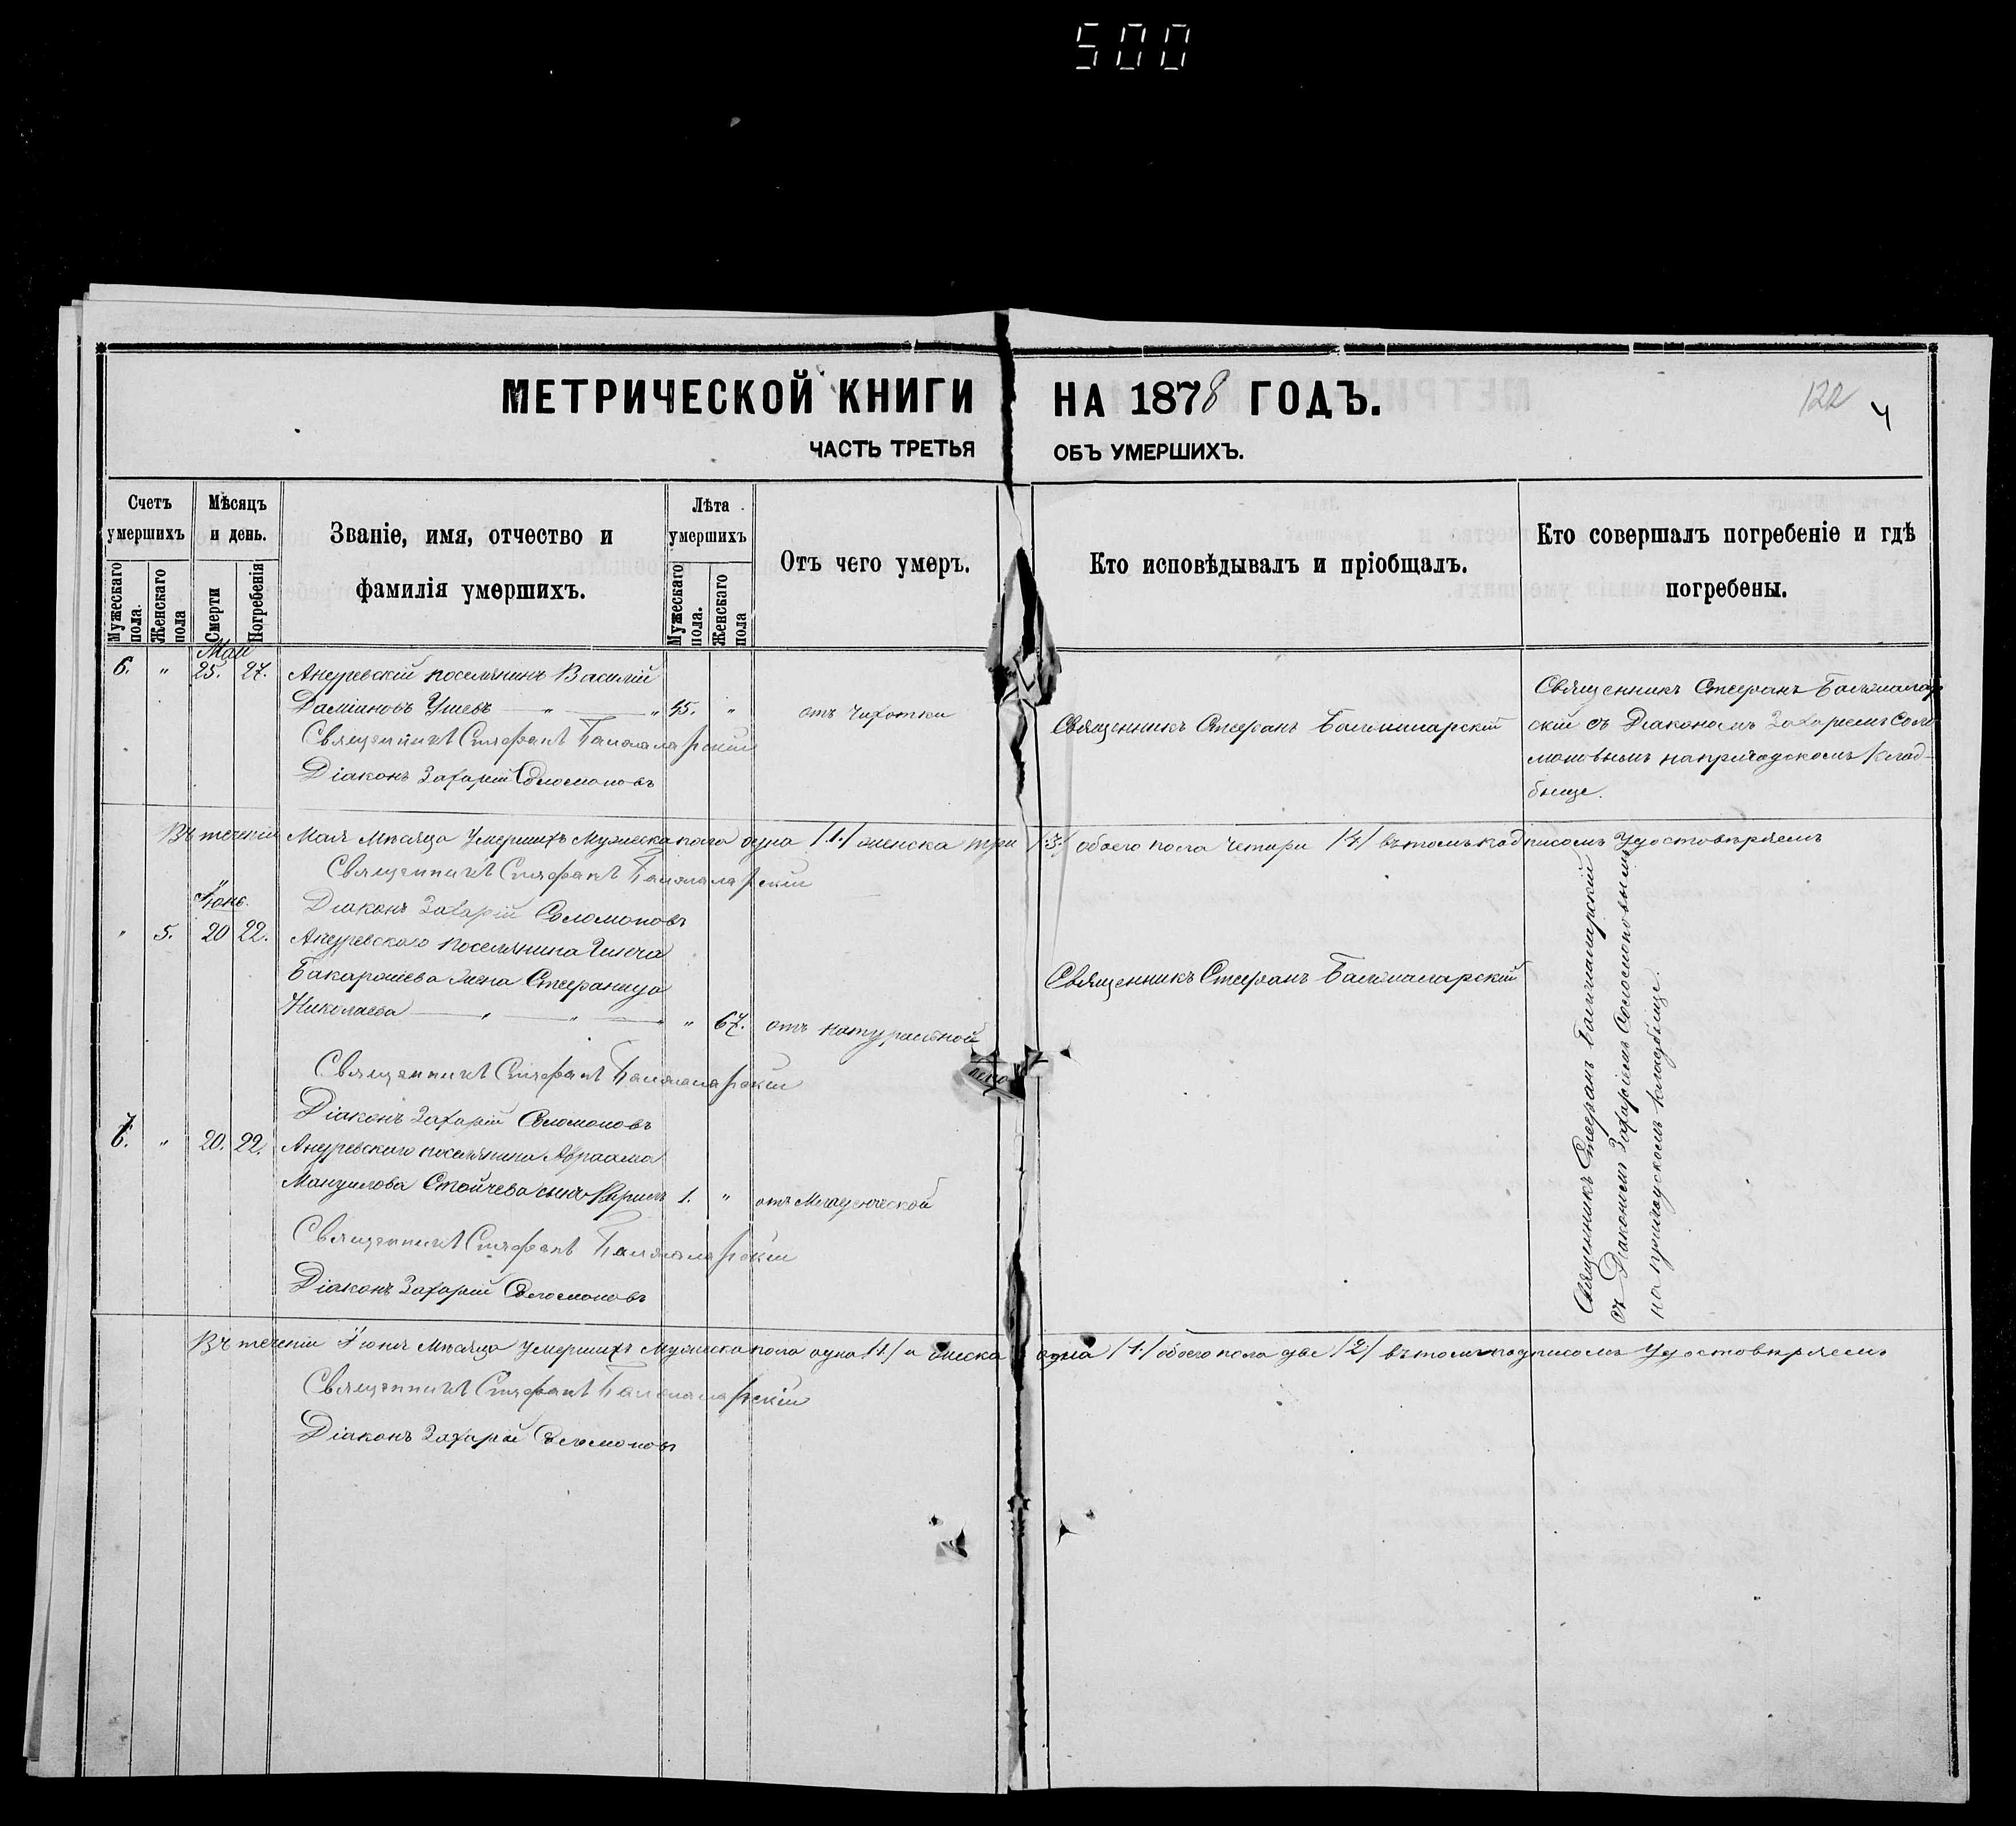 500
МЕТРИЧЕСКОЙ КНИГИ НА 1878 ГОДЪ.
122 4
ЧАСТЬ ТРЕТЬЯ ОБЪ УМЕРШИХЪ.
Счетъ умершихъ
Мужескаго пола.
Женскаго пола
Мѣсяцъ и день.
Смерти
Погребенія
Званіе, имя, отчество и
фамилія умершихъ.
Лѣта умершихъ
Мужескаго пола.
Женскаго пола
Отъ чего умеръ.
Кто исповѣдывалъ и пріобщалъ.
Кто совершалъ погребеніе и гдѣ
погребены.
Май
6. " 25. 27. поселянинъ Василій
Даміановъ " " 45. " отъ Чахотки
Священникъ Стефанъ
Діаконъ Захарій Соломоновъ
Священникъ Стефанъ
Священникъ Стефанъ
скій съ Діакономъ Захаріемъ Соло
моновымъ на приходскомъ клад-
бище.
Въ теченіи Мая Мѣсяца Умершихъ Мужеска пола одна /1./ женска три /3/ обоего пола четири /4/ въ томъ подписомъ Удостовѣряемъ
Священникъ Стефанъ
Діаконъ Захарій Соломоновъ
Іюнь.
" 5. 20 22. поселянина
жена Стефанида
Николаева " " " " 67. отъ натуральной
Священникъ Стефанъ
Священникъ Стефанъ
Діаконъ Захарій Соломоновъ
20. 22. поселянина Авраама
Стойчева сынъ 1. " отъ Младенческой
Священникъ Стефанъ
Діаконъ Захарій Соломоновъ
Священникъ Стефанъ
съ Діакономъ Захаріемъ Соломоновымъ
на приходскомъ кладбище.
Въ теченіи Іюня Мѣсяца Умершихъ Мужеска пола одна /1/ и женска одна /1./ обоего пола две /2/ въ томъ подписомъ Удостовѣряемъ
Священникъ Стефанъ
Діаконъ Захарій Соломоновъ